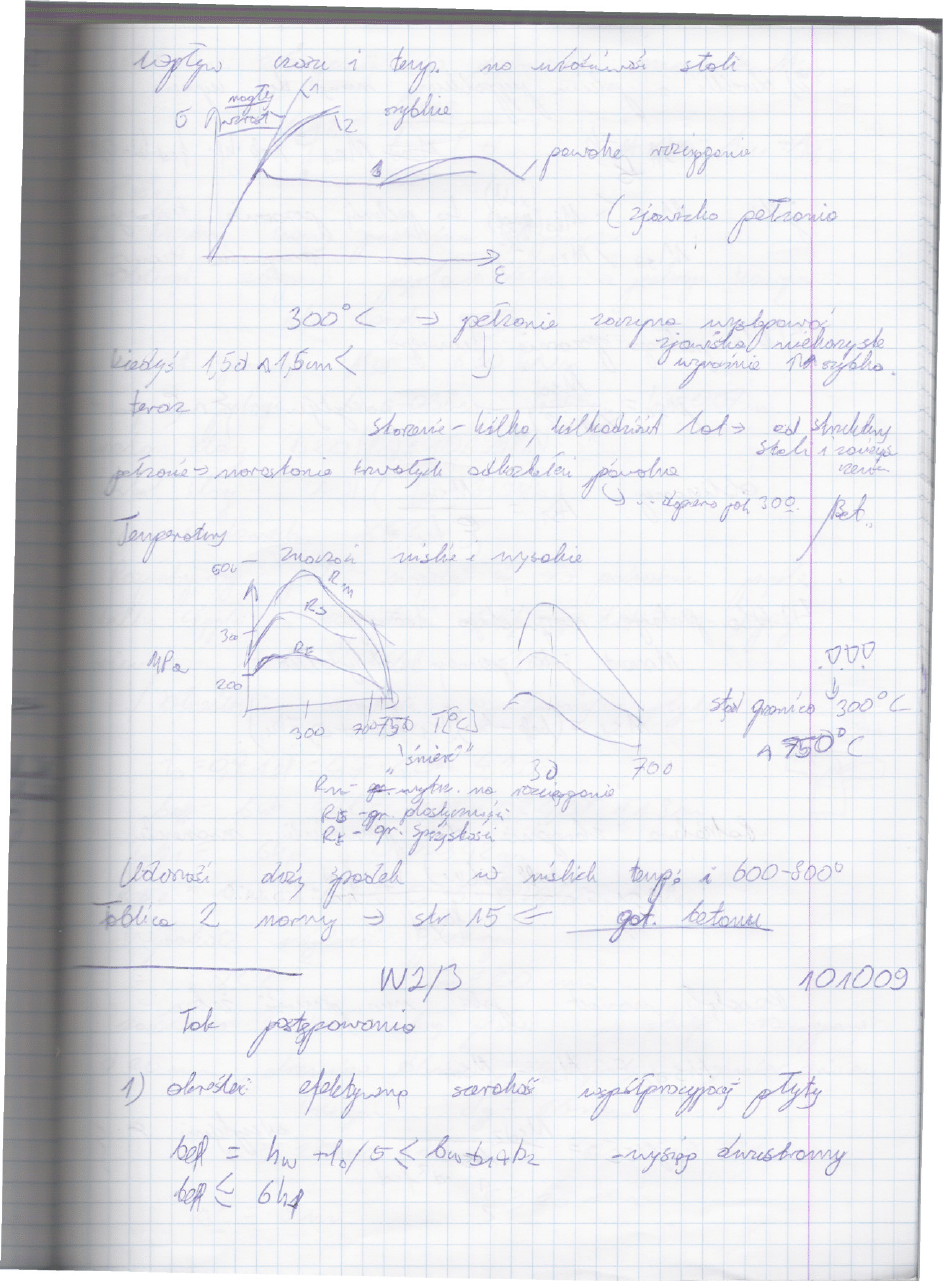 Wpływ czasu i temp. na własność stali
nagły
wzrost
1
σ
2
szybkie
powolne rozciąganie
(zjawisko pełzania
ε
300°C → pełzanie zaczyna występować
zjawiska niekorzystne
wzrośnie szybko.
kiedyś 1,5d ∧ 1,5cm <
teraz
starzenie - kilka, kilkadziesiąt lat → od struktury
stali i
pełzanie → narastanie trwałych odkształceń powolne
... dopiero jak 300.
Bet.
Temperatury
500
- znaczące niskie i wysokie
Rm
Rs
300
RE
MPa
200
300 700 750 T[°C]
"śmierć"
30 700
stąd granica 300°C
∧ 750°C
Rm - wytrz. na rozciąganie
Rs - gr. plastyczności
RE - gr. sprężystości
Udarność duży spadek w niskich temp. i 600-800°
Tablica 2 normy → str 15 ⇐ gat. betonu
W2/3
101009
Tok postępowania
1) określić efektywną szerokość współpracującej płyty
beff = bw + l0/5 ≤ bw + b1 + b2 - wysięg dwustronny
beff ≤ 6hf